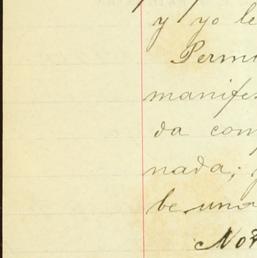 y yo le
Permi
manifes
da com
nada; y
be una
Not